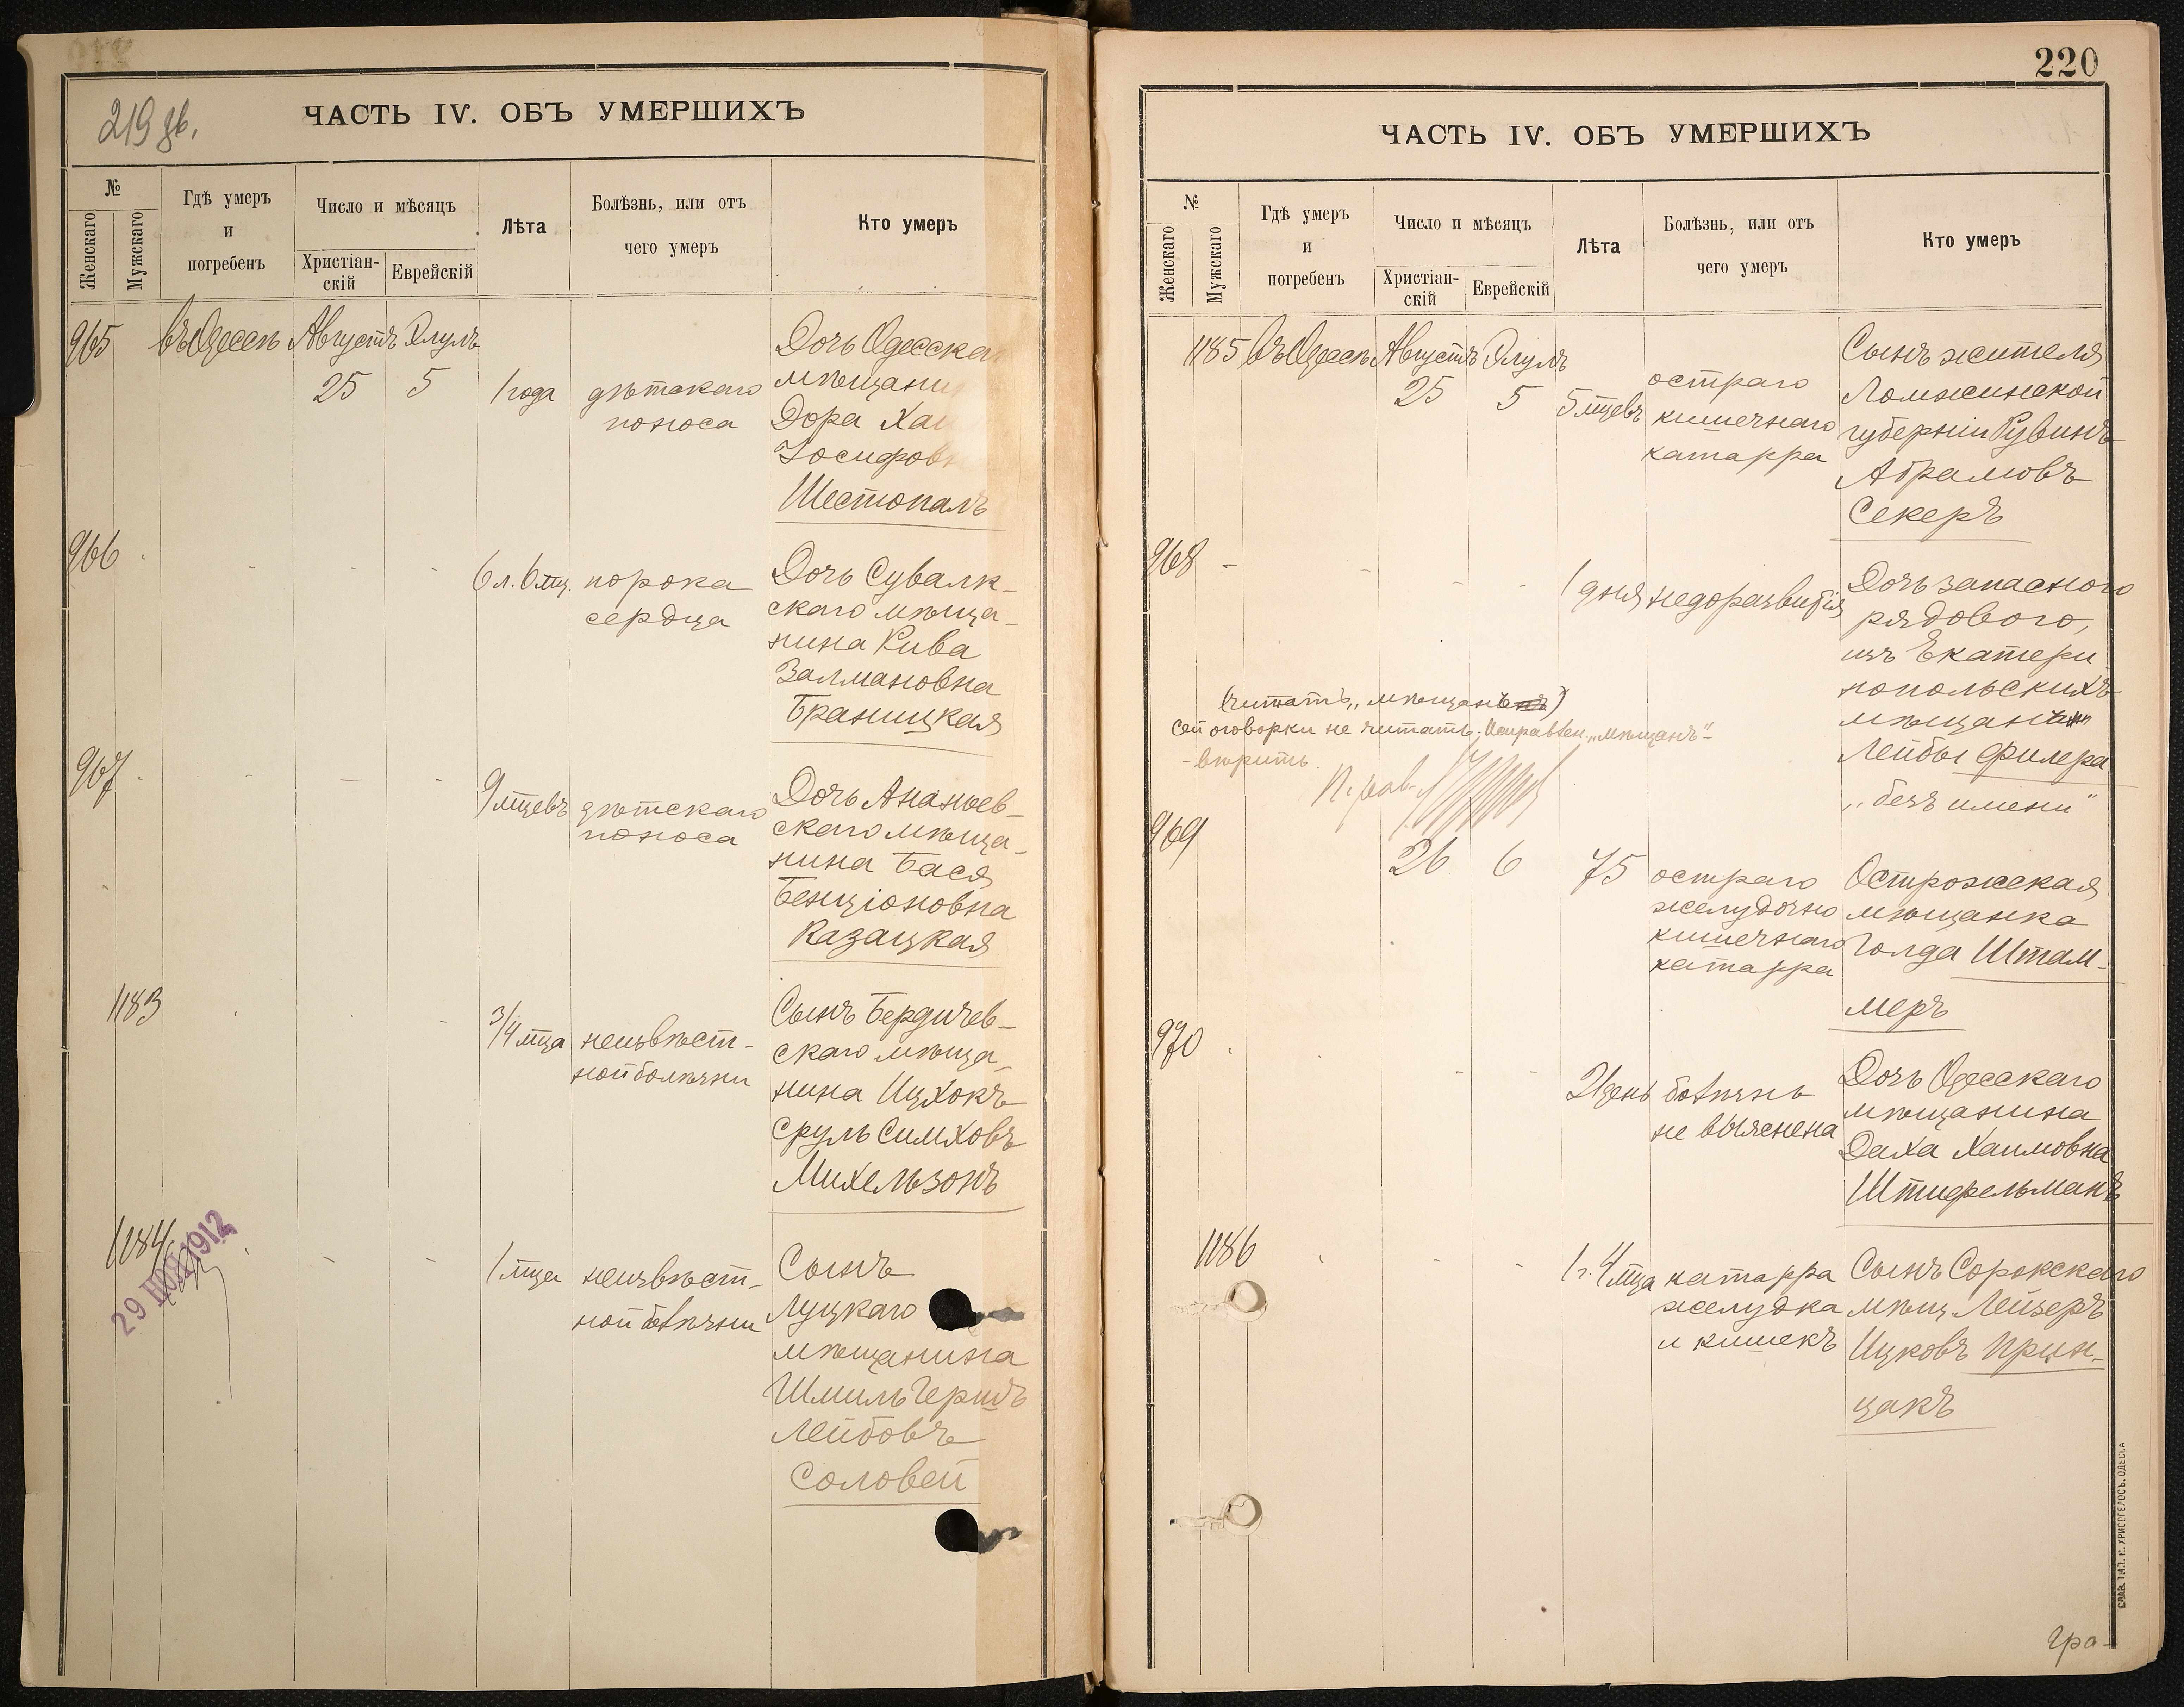 219 об.
ЧАСТЬ IV. ОБЪ УМЕРШИХЪ
№
Женскаго
Мужскаго
Гдѣ умеръ
и
погребенъ
Число и мѣсяцъ
Христіан-
скій
Еврейскій
Лѣта
Болѣзнь, или отъ
чего умеръ
Кто умеръ
965 въ Одессѣ Августъ Элулъ
25 5 1 года дѣтскаго
поноса
Дочь Одесска
мѣщани
Дора Хаи
Іосифов
Шестопалъ
966
6 л. 6 мц. порока
сердца
Дочь Сувалк-
скаго мѣща-
нина Рива
Залмановна
Браницкая
967
9 мцевъ дѣтскаго
поноса
Дочь Ананьев-
скаго мѣща-
нина Бася
Бенціоновна
Казацкая
1183
3/4 мца неизвѣст-
ной болѣзни
Сынъ Бердичев-
скаго мѣща-
нина Ицхокъ
Сруль Симховъ
Михельзонъ
1184
29 1912
1 мца неизвѣст-
ной болѣзни
Сынъ
Луцкаго
мѣщанина
Шмиль Гершъ
Лейбовъ
Соловей
220
ЧАСТЬ IV. ОБЪ УМЕРШИХЪ
№
Женскаго
Мужскаго
Гдѣ умеръ
и
погребенъ
Число и мѣсяцъ
Христіан-
скій
Еврейскій
Лѣта
Болѣзнь, или отъ
чего умеръ
Кто умеръ
1185 въ Одессѣ Августъ Элулъ
25 5 5 мцевъ
остраго
кишечнаго
катарра
Сынъ жителя
Ломжинской
губерніи Рувинъ
Абрамовъ
Секеръ
968
1 дня недоразвитія
Дочь запасного
рядового,
изъ Екатери
нопольскихъ
мѣщанъ
Лейбы Филера
„безъ имени"
(читать „мѣщанъ)
Сей оговорки не читать; Исправлен. „мѣщанъ"-
- вѣрить.
П. рав.
969
26 6 75 остраго
желудочно
кишечнаго
катарра
Острожская
мѣщанка
Голда Штам-
меръ
970
21 день болѣзнь
не выяснена
Дочь Одесскаго
мѣщанина
Даха Хаимовна
Штифельманъ
1186
1 г. 4 мца катарра
желудка
и кишекъ
Сынъ Сорокскаго
мѣщ Лейзеръ
Ицковъ Прин-
цакъ
Гра-